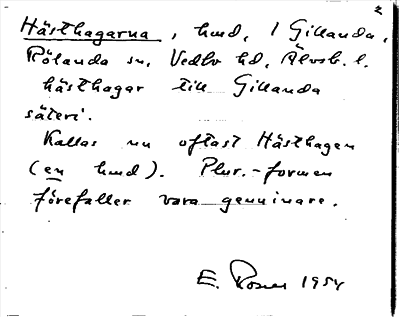 Hästhagarna, hmd, / Gillanda,
Rölanda sn, Vedbo hd, Älvsb. l.
hästhagar till Gillanda
säteri.
Kallas nu oftast Hästhagen
(en hmd). Plur.-formen
förefaller vara genuinare.
E. 1954